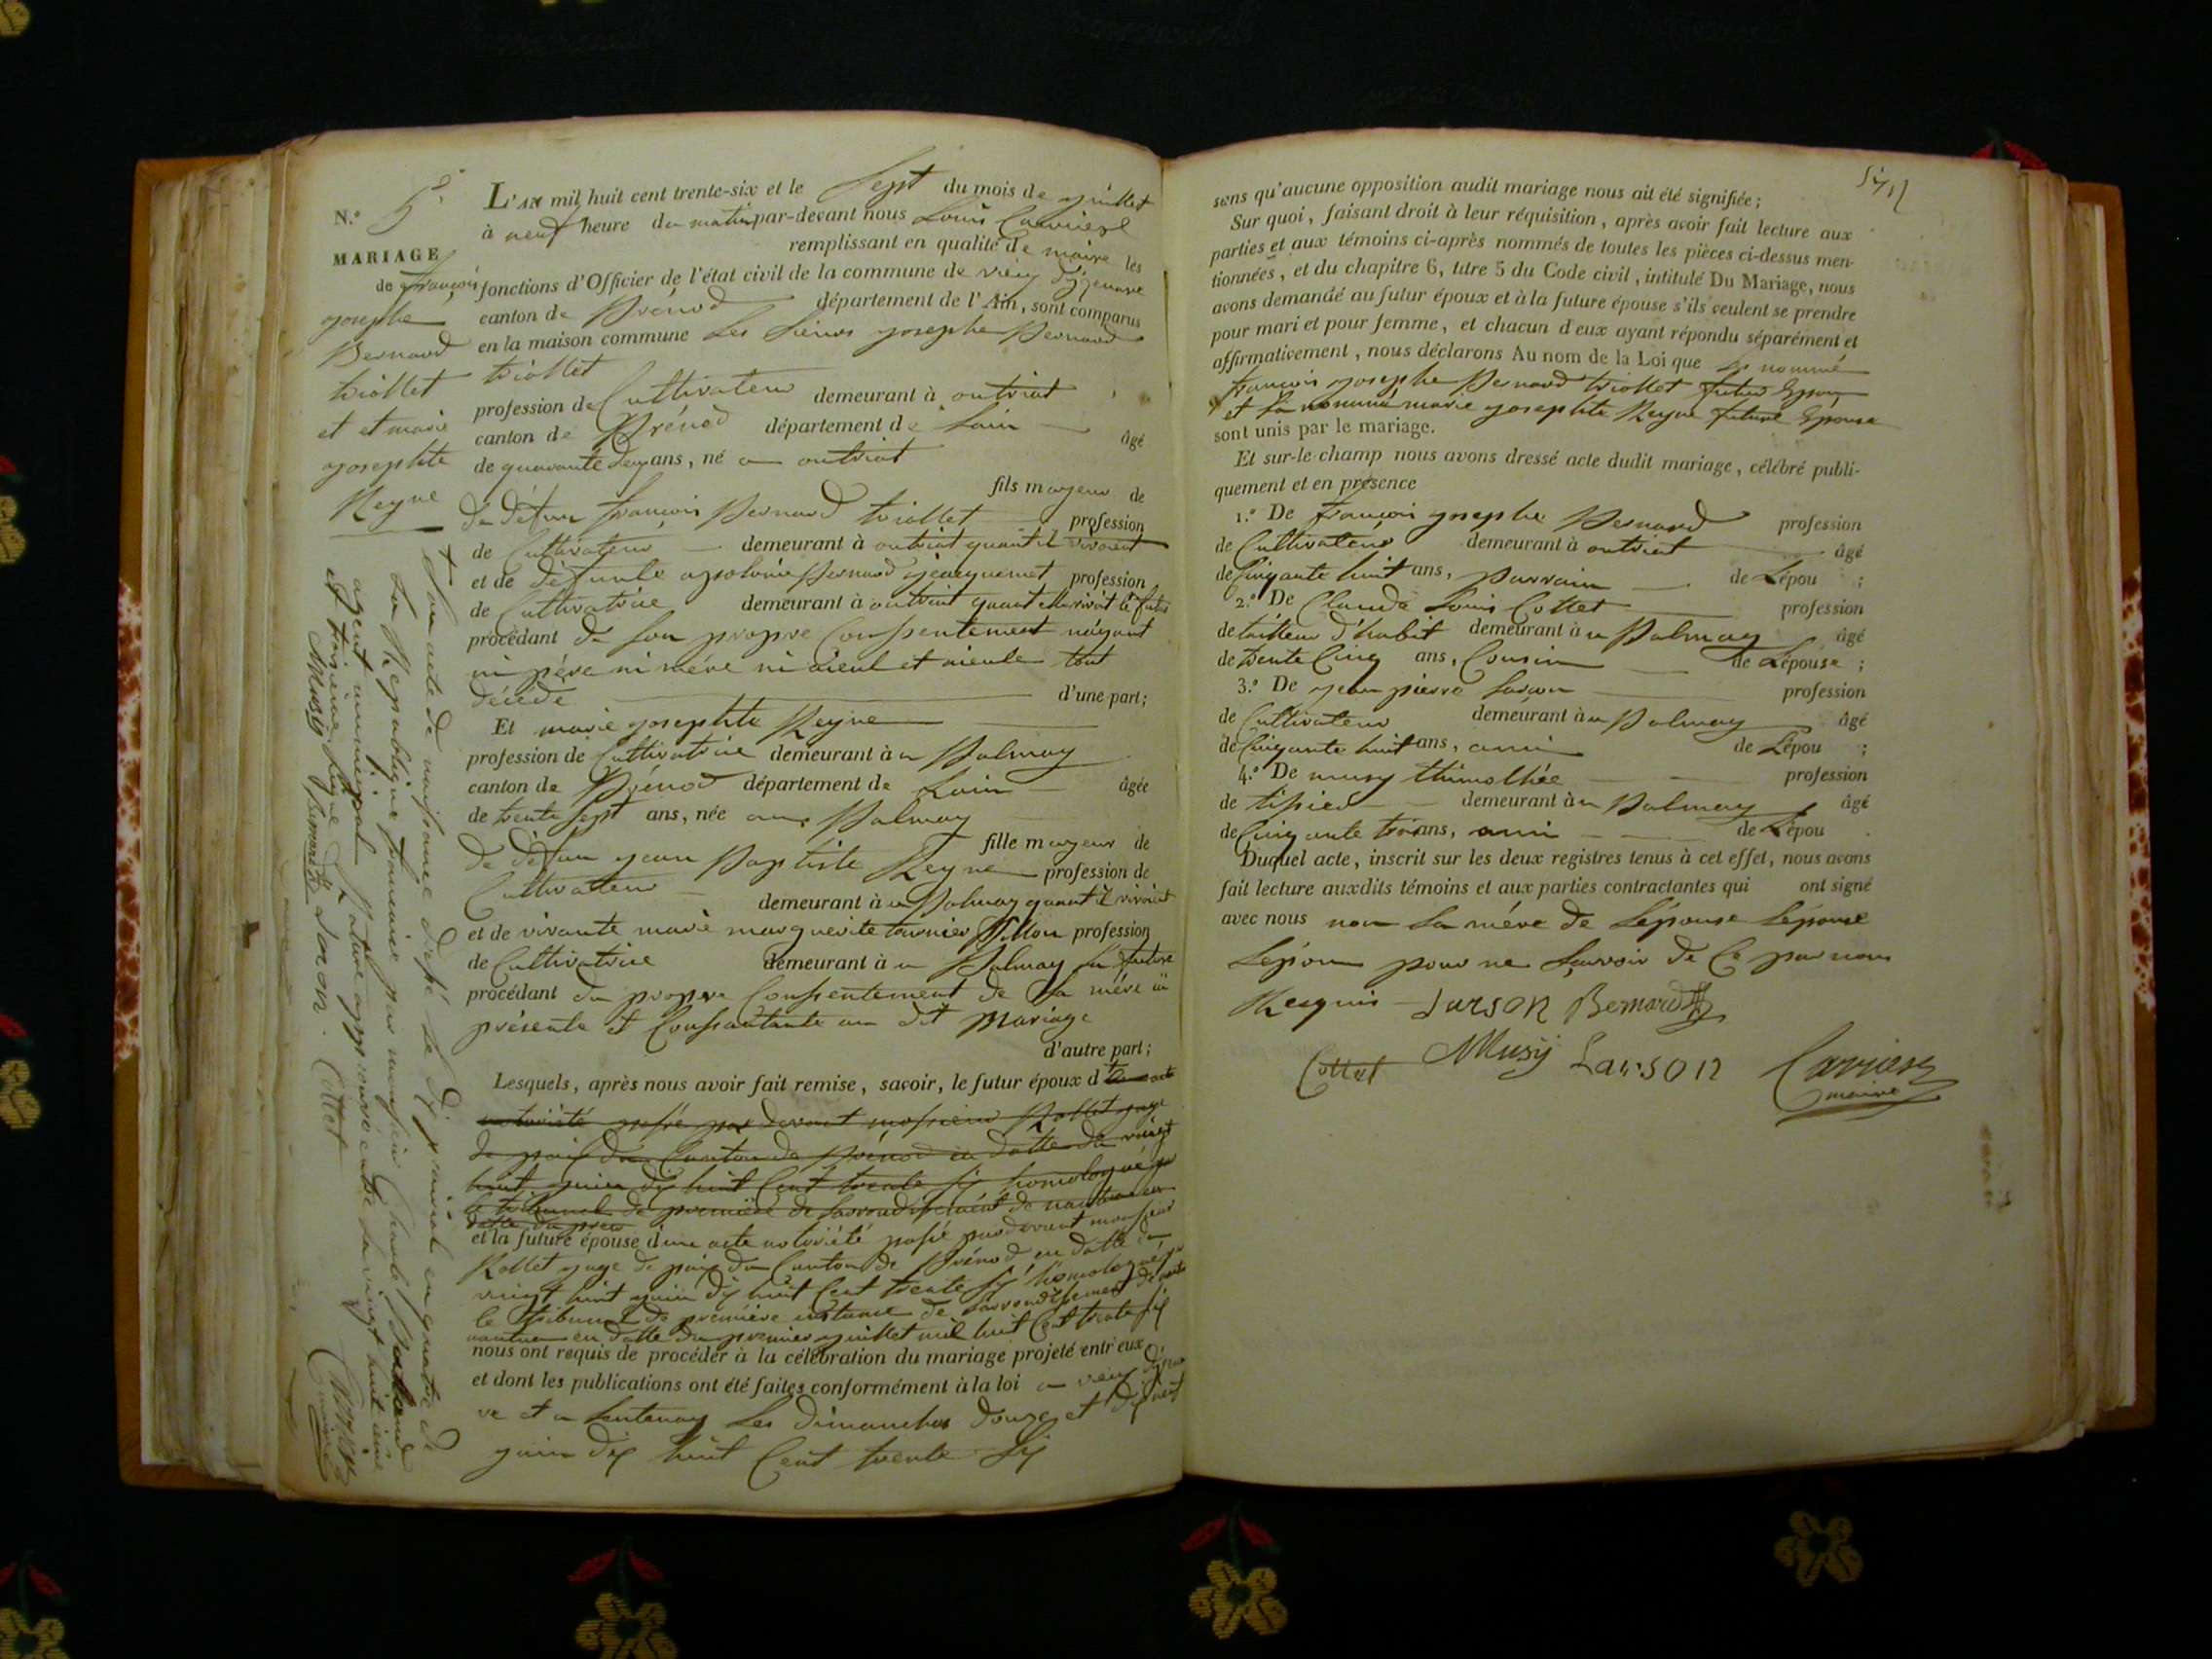 N.º 5
MARIAGE
de François
josephe
Bernard
triollet
et et marie
josephte
Reyne
L'AN mil huit cent trente-six et le Sept du mois de juillet
à neuf heure du matin par-devant nous Louis Carrier
remplissant en qualité de maire les
fonctions d'Officier de l'état civil de la commune de vieu d'izenave
canton de Brénod département de l'Ain, sont comparus
en la maison commune Les Sieurs josephe Bernard
triollet
profession de Cultivateur demeurant à outriat
canton de Brénod département de Lain âgé
de quarante deux ans, né a outriat
fils majeur de
de défun françois Bernard triollet profession
de Cultivateur demeurant à outriat quant il vivoint
et de défunte apolonie Bernard jacquemet profession
de Cultivatrice demeurant à outriat quant elle vivoit le futur
procédant de son propre Consentement näyant
ni pére ni mére ni aieul et aieule tout
décédé d'une part;
Et marie josephte Reyne
profession de Cultivatrice demeurant à u Balmay
canton de Brénod département de Lain âgée
de trente Sept ans, née au Balmay
fille majeur de
de défun jean Baptiste Reyne profession de
Cultivateur
demeurant à u Balmay quant il vivoint
et de vivante marie marguerite tournier Billon profession
de Cultivatrice demeurant à u Balmay la future
procédant du propre Consentement de sa mére ici
présente et Consantante au dit Mariage
d'autre part;
Lesquels, après nous avoir fait remise, savoir, le futur époux d'un acte
notoriété passé par devant mossieur Rollet juge
de paix du Canton de Brénod en datte du vingt
huit juin dix huit Cent trente six homologué par
le tribunal de premiére de larrondissement de nantua en
datte du prem
et la future épouse d'un acte notoriété passé par devant monsieur
Rollet juge de paix du Canton de Brénod en datte du
vingt huit juin dix huit Cent trente six homologué par
le tribunal de premiére instance de larrondissement de
nantua en datte du premier juillet mil huit Cent trente six
nous ont requis de procéder à la célébration du mariage projeté entr'eux
et dont les publications ont été faites conformément à la loi a vieu d'izena
ve et a Lantenay Les dimanches douze et dixneuf
juin dix huit Cent trente Six
+ Son acte de naissance dressé le dix prairial en quatre de
La Republique francaise par monsieur Charle Balland
agent municipal Rature approuvée cette la vingt huit ieme
et troisieme Ligne Bernard Larson Collet
Musy Carrier maire
sans qu'aucune opposition audit mariage nous ait été signifiée;
Sur quoi, faisant droit à leur réquisition, après avoir fait lecture aux
parties et aux témoins ci-après nommés de toutes les pièces ci-dessus men-
tionnées, et du chapitre 6, titre 5 du Code civil, intitulé Du Mariage, nous
avons demandé au futur époux et à la future épouse s'ils veulent se prendre
pour mari et pour femme, et chacun d'eux ayant répondu séparément et
affirmativement, nous déclarons Au nom de la Loi que Le nommé
françois josephe Bernard triollet futur Epoux
et la nommé marie josephte Reyne future Epouse
sont unis par le mariage.
Et sur-le-champ nous avons dressé acte dudit mariage, célébré publi-
quement et en présence
1.º De françois josephe Bernard profession
de Cultivateur demeurant à outriat âgé
de Cinqante huit ans, parrain de Lépou ;
2.º De Claude Louis Collet profession
de tailleur d'habit demeurant à u Balmay âgé
de trente Cinq ans, Cousin de Lépouse ;
3.º De jean pierre Larson profession
de Cultivateur demeurant à u Balmay âgé
de Cinqante huit ans, ami de Lépou ;
4.º De musy thimothée profession
de tissier demeurant à u Balmay âgé
de Cinqante trois ans, ami de Lépou .
Duquel acte, inscrit sur les deux registres tenus à cet effet, nous avons
fait lecture auxdits témoins et aux parties contractantes qui ont signé
avec nous non La mére de Lépouse Lépouse
Lépoux pour ne Savoir de Ce par nous
Requis Larson Bernard
Collet Musy Larson Carrier
maire